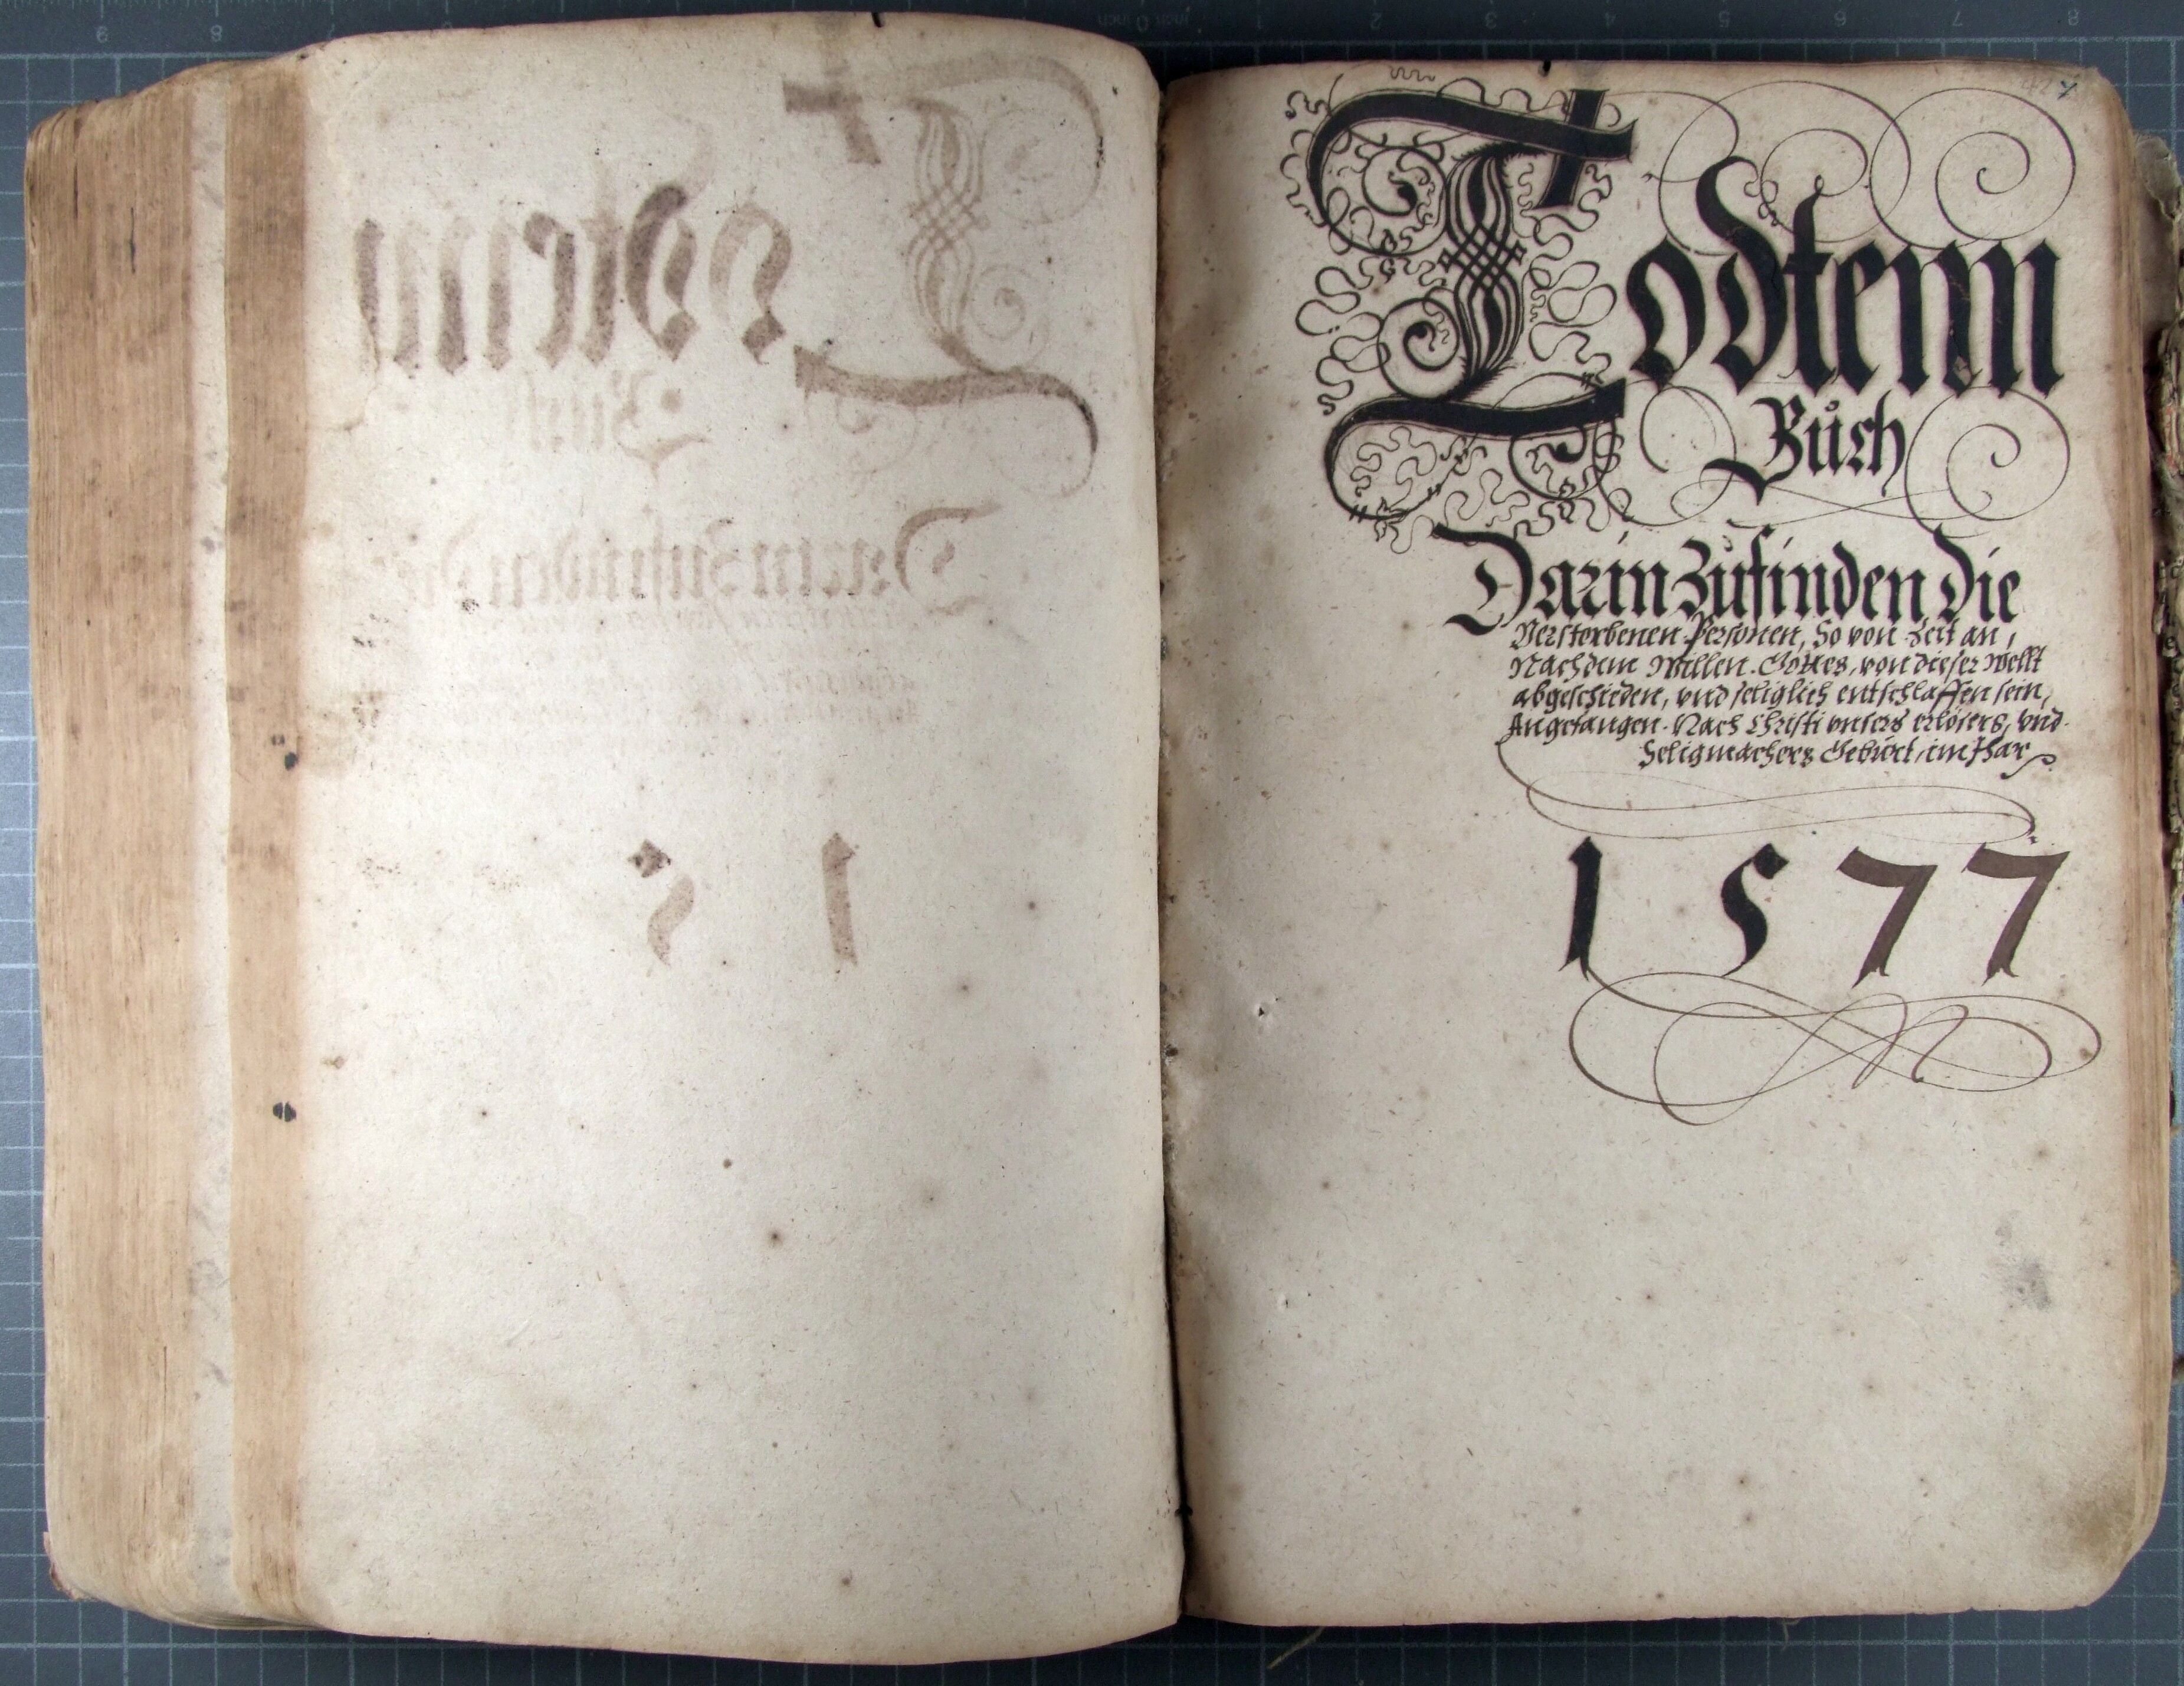 Todtenn
Buch
Darin Zufinden Die
Verstorbenen Personen, So von Zeit an,
Nach dem Willen Gottes, von dieser Wellt
abgeschieden, vnd seliglich entschlaffen sein,
Angefangen Nach Christi vnsers erlösers, vnd
Seligmachers Geburt, im Jhar
1577